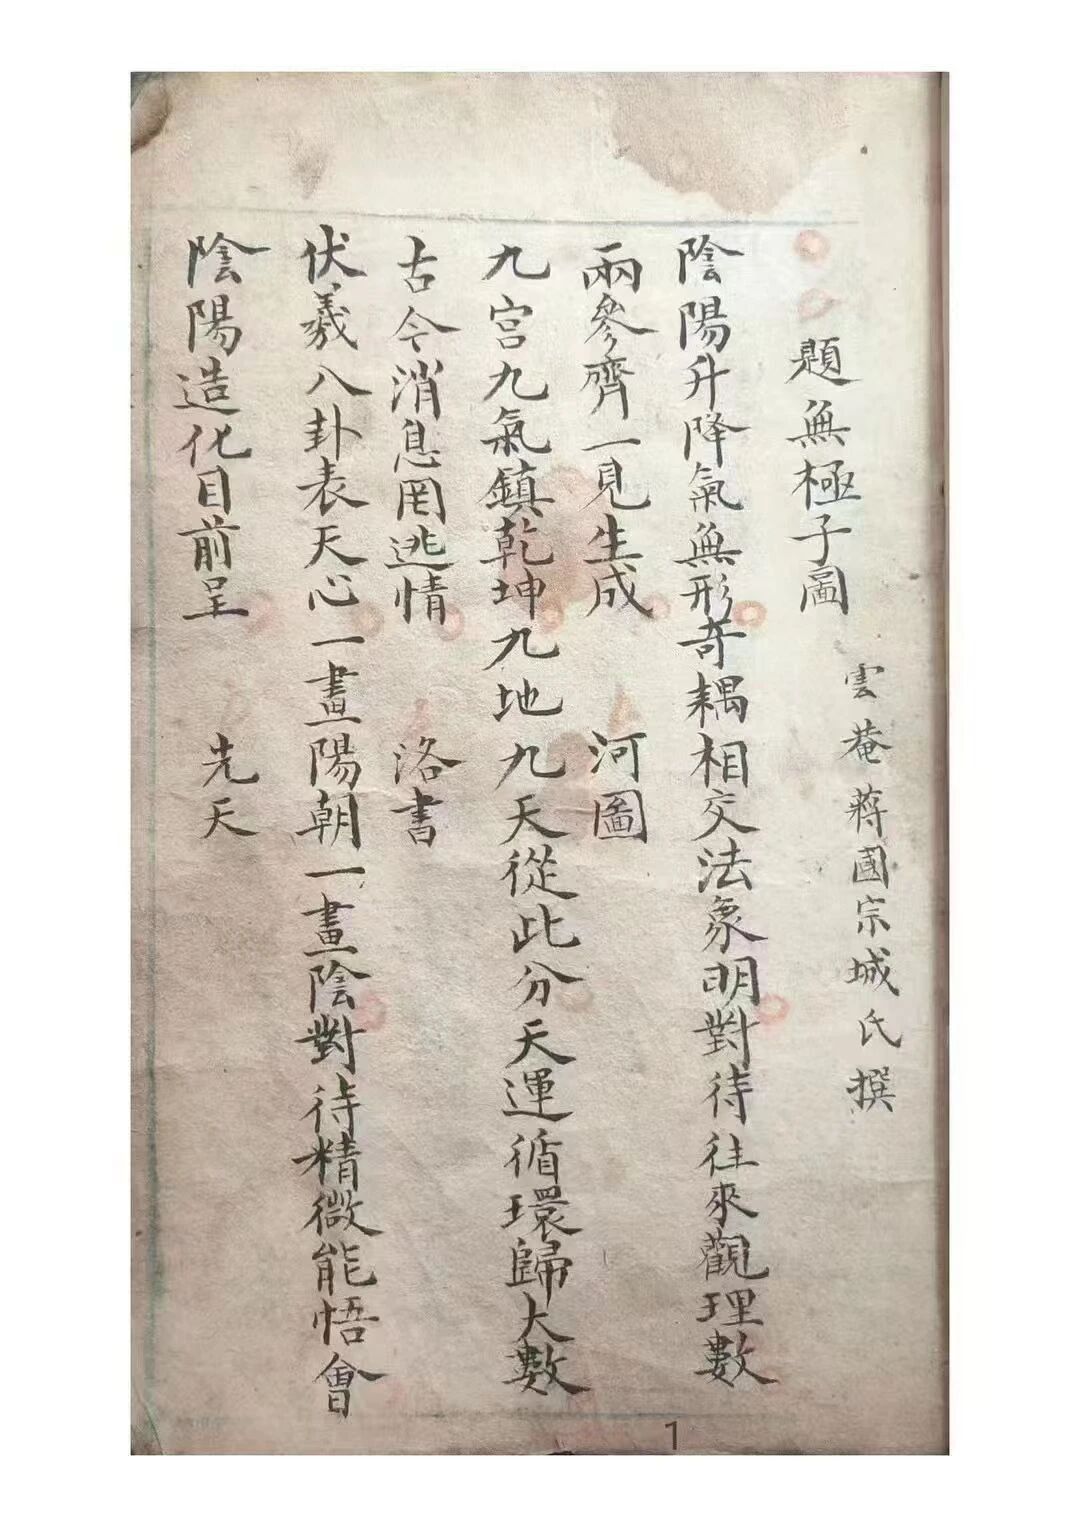 雲菴蔣國宗城氏撰
題無極子圖
陰陽升降氣無形奇耦相交法象明對待往來觀理數
兩參齊一見生成 河圖
九宮九氣鎮乾坤九地九天從此分天運循環歸大數
古今消息罔逃情 洛書
伏羲八卦表天心一畫陽朝一畫陰對待精微能悟會
陰陽造化目前呈 先天
1